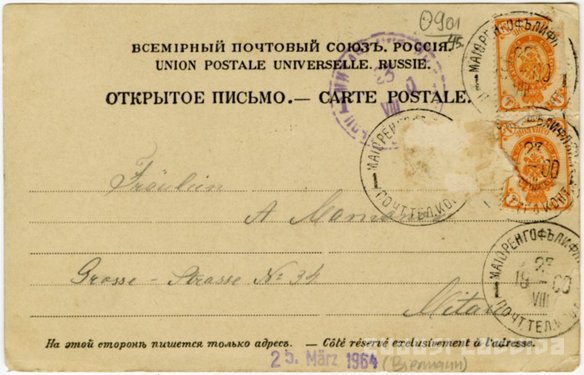 0901
ВСЕМІРНЫЙ ПОЧТОВЫЙ СОЮЗЪ. РОССІЯ.
UNION POSTALE UNIVERSELLE. RUSSIE.
ОТКРЫТОЕ ПИСЬМО.— CARTE POSTALE.
МАІОРЕНГОФЪ ЛИФЛ
23
VIII
МАІОРЕНГОФЪ
ПОЧТ.ТЕЛ.КО
23
00
МАІОРЕНГОФЪ ЛИФЛ
1 23
19 – 00
VIII
ПОЧТ.ТЕЛ.К
Fräulein
A
Grosse - Strasse No 34
Mitau
На этой сторонѣ пишется только адресъ. — Côté réservé exclusivement à l'adresse.
25. März 1964